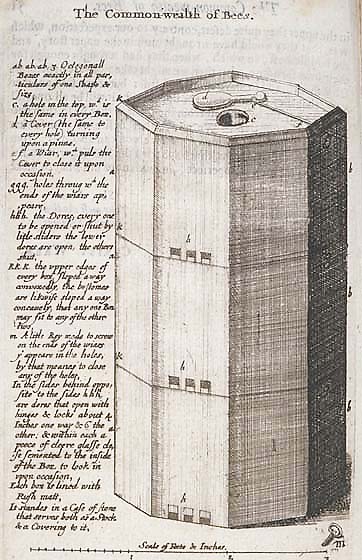 The Common-wealth of Bees.
ab ab ab 3 Octogonall
Boxes exactly in all par,
ticulars of one Shape &
Size
c. a hole in the top, wch. is
the same in every Box.
d. a Cover (the same to
every hole) turning
upon a pinne.
e f a Wier, wch puls the
Cover to close it upon
occasion.
ggg. holes throug wch the
ends of the wiers ap,
peare.
hhh. the Dores, every one
to be opened or shut by
little sliders the lower
dores are open, the others
shut.
KKK. the upper edges of
every box sloped away
convexedly, the bottomes
are likwise sloped away
concavely, that any one Box
may fit to any of the other
two.
m. A litle Key made to screw
on the ends of the wiers
yt appeare in the holes,
by that meanes to close
any of the holes.
In the sides behind oppo,
site to the sides hhh,
are dores that open with
hinges & locks about 4
Inches one way & 6 the
other: & within each a
peece of cleere glasse cle,
se semented to the inside
of the Box, to look in
upon occasion,
Each box is lined with
Rush matt,
It standes in a Case of stone
that serves both as a Stock
& a Covering to it,
k
d
c
a
b
h
Scale of Feete & Inches.
1
2
3
m